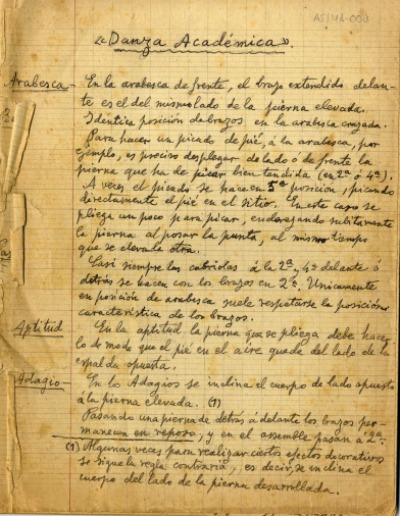 «Danza Académica».
Arabesca - En la arabesca de frente, el brazo extendido delan-
te es el del mismo lado de la pierna elevada.
Identica posición de brazos en la arabesca cruzada.
Para hacer un picado de pié, á la arabesca, por
ejemplo, es preciso desplegar de lado ó de frente la
pierna que ha de picar bien tendida (en 2ª ó 4ª).
A veces el picado se hace en 5ª posición, picando
directamente el pié en el sitio. En este caso se
pliega un poco para picar, enderezando subitamente
la pierna al posar la punta, al mismo tiempo
que se eleva la otra.
Casi siempre las cabriolas á la 2ª y 4ª delante ó
detrás se hacen con los brazos en 2ª. Unicamente
en posición de arabesca suele respetarse la posición
caracteristica de los brazos.
Aptitud En la aptitud la pierna que se pliega debe hacer-
lo de modo que el pié en el aire quede del lado de la
espalda opuesta.
Adagio - En los Adagios se inclina el cuerpo de lado opuesto
á la pierna elevada. (1)
Pasando una pierna de detrás á delante los brazos per-
manecen en reposo, y en el assemble pasan á 2ª.
(1) Algunas veces para realizar ciertos efectos decorativos
se sigue la regla contraria, es decir, se inclina el
cuerpo del lado de la pierna desarrollada.